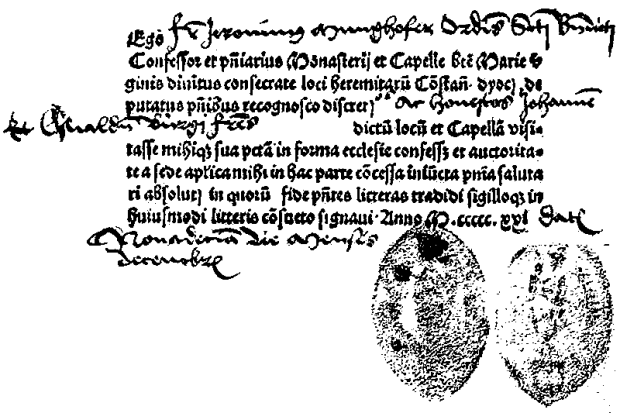 Ego fr Jeronimus Munghofer Ordis Scti Bndicti
Confessor et pn̄iarius Monasterij et Capelle btē Marie v
ginis diuitus consecrate loci heremitarū Cōstan̄. dyoc̄ȷ de
putatus pn̄ibus recognosco discret ac honestos Johannē
et Oswaldū frēs dictū locū et Capellā visi-
tasse mihiqȝ sua pctā in forma ecclesie confessȝ et auctorita-
te a sede aplica mihi in hac parte cōcessa iniūcta pn̄ia saluta
ri absolui: in quorū fidē pn̄tes litteras tradidi sigilloqȝ in
huiusmodi litteris cōsueto signaui. Anno M.ccccc.xxi Datȝ
Die Mensis
decembrȝ